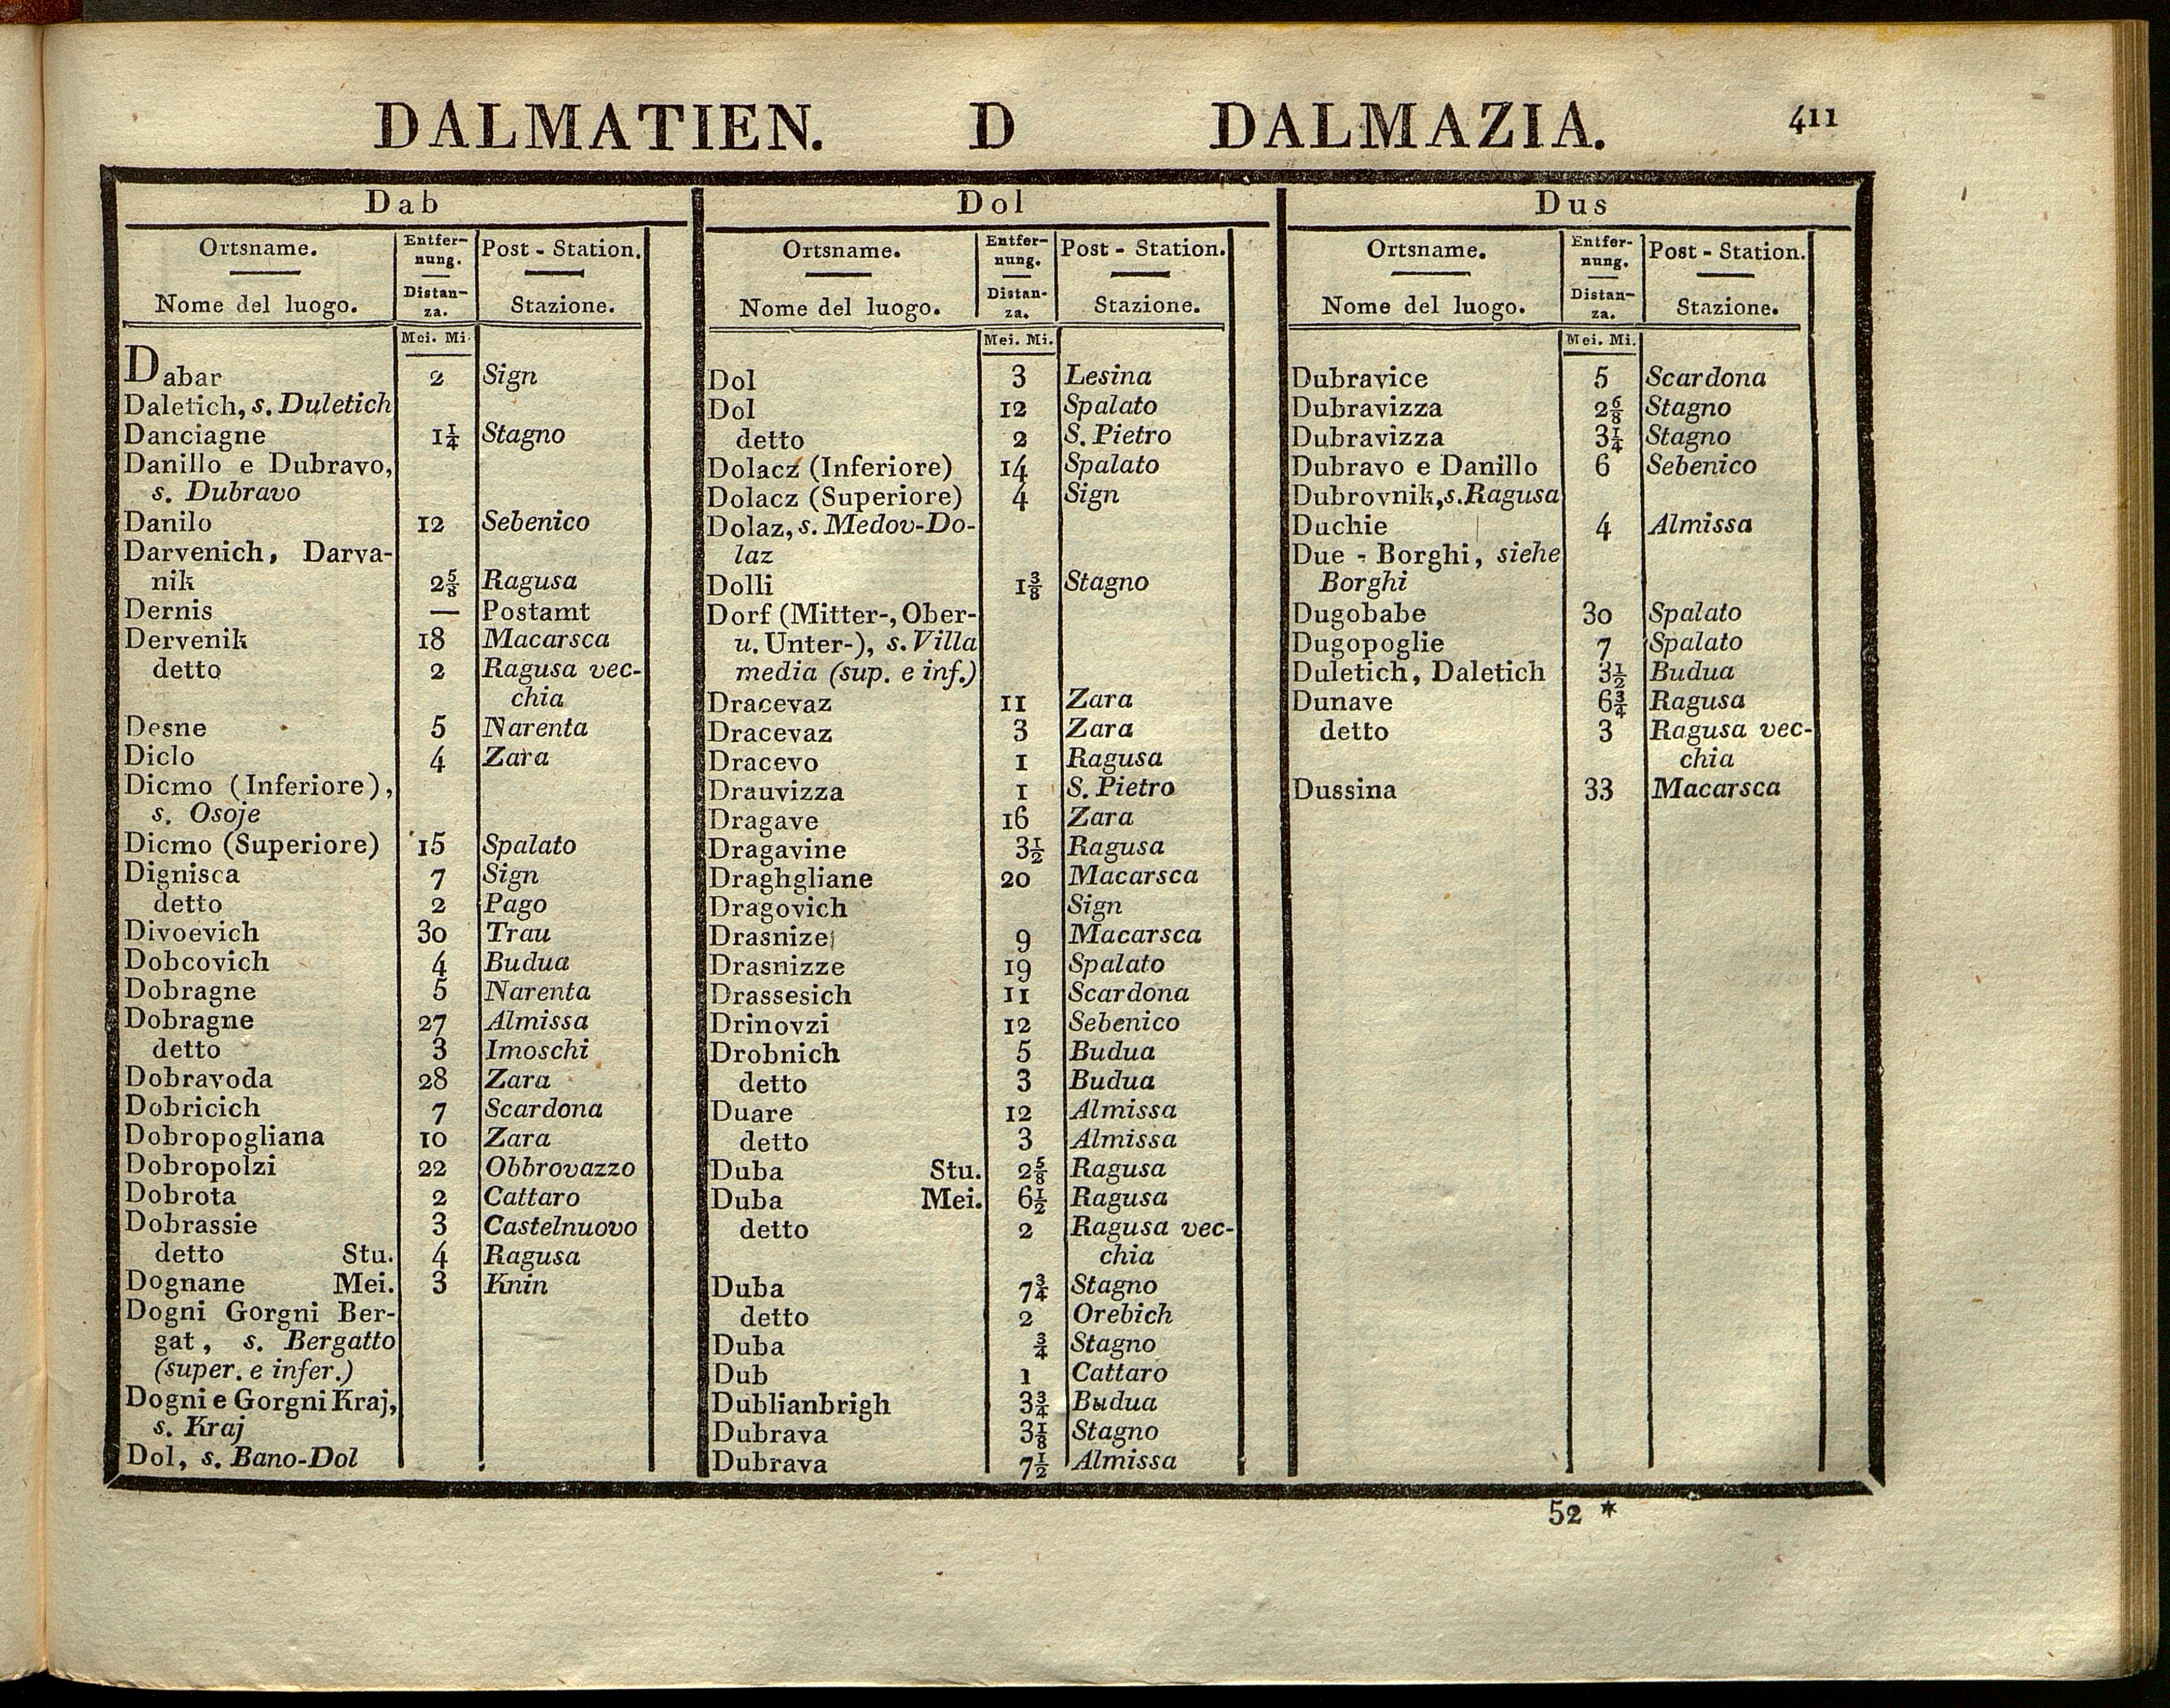 DALMATIEN. D DALMAZIA. 411
Dab
Ortsname. Entfer- Post - Station.
nung.
Nome del luogo. Distan- Stazione.
za.
Mei. Mi.
Dabar 2 Sign
Daletich, s. Duletich
Danciagne 1¼ Stagno
Danillo e Dubravo,
s. Dubravo
Danilo 12 Sebenico
Darvenich, Darva-
nik 2⅝ Ragusa
Dernis — Postamt
Dervenik 18 Macarsca
detto 2 Ragusa vec-
chia
Desne 5 Narenta
Diclo 4 Zara
Dicmo (Inferiore),
s. Osoje
Dicmo (Superiore) 15 Spalato
Dignisca 7 Sign
detto 2 Pago
Divoevich 30 Trau
Dobcovich 4 Budua
Dobragne 5 Narenta
Dobragne 27 Almissa
detto 3 Imoschi
Dobravoda 28 Zara
Dobricich 7 Scardona
Dobropogliana 10 Zara
Dobropolzi 22 Obbrovazzo
Dobrota 2 Cattaro
Dobrassie 3 Castelnuovo
detto Stu. 4 Ragusa
Dognane Mei. 3 Knin
Dogni Gorgni Ber-
gat, s. Bergatto
(super. e infer.)
Dogni e Gorgni Kraj,
s. Kraj
Dol, s. Bano-Dol
Dol
Ortsname. Entfer- Post - Station.
nung.
Nome del luogo. Distan- Stazione.
za.
Mei. Mi.
Dol 3 Lesina
Dol 12 Spalato
detto 2 S. Pietro
Dolacz (Inferiore) 14 Spalato
Dolacz (Superiore) 4 Sign
Dolaz, s. Medov-Do-
laz
Dolli 1⅜ Stagno
Dorf (Mitter-, Ober-
u. Unter-), s. Villa
media (sup. e inf.)
Dracevaz 11 Zara
Dracevaz 3 Zara
Dracevo 1 Ragusa
Drauvizza 1 S. Pietro
Dragave 16 Zara
Dragavine 3½ Ragusa
Draghgliane 20 Macarsca
Dragovich Sign
Drasnize 9 Macarsca
Drasnizze 19 Spalato
Drassesich 11 Scardona
Drinovzi 12 Sebenico
Drobnich 5 Budua
detto 3 Budua
Duare 12 Almissa
detto 3 Almissa
Duba Stu. 2⅝ Ragusa
Duba Mei. 6½ Ragusa
detto 2 Ragusa vec-
chia
Duba 7¾ Stagno
detto 2 Orebich
Duba ¾ Stagno
Dub 1 Cattaro
Dublianbrigh 3¾ Budua
Dubrava 3⅛ Stagno
Dubrava 7½ Almissa
Dus
Ortsname. Entfer- Post - Station.
nung.
Nome del luogo. Distan- Stazione.
za.
Mei. Mi.
Dubravice 5 Scardona
Dubravizza 2 6/8 Stagno
Dubravizza 3¼ Stagno
Dubravo e Danillo 6 Sebenico
Dubrovnik, s. Ragusa
Duchie 4 Almissa
Due - Borghi, siehe
Borghi
Dugobabe 30 Spalato
Dugopoglie 7 Spalato
Duletich, Daletich 3½ Budua
Dunave 6¾ Ragusa
detto 3 Ragusa vec-
chia
Dussina 33 Macarsca
52 *